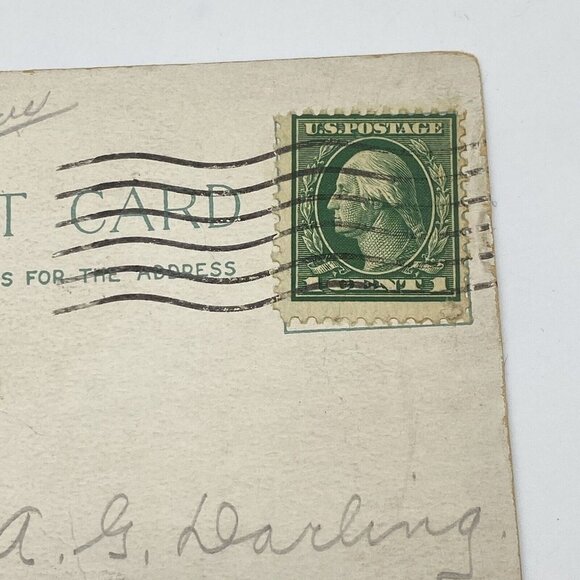 U.S. POSTAGE
T CARD
S FOR THE ADDRESS
1 CENT 1
A. G. Darling.